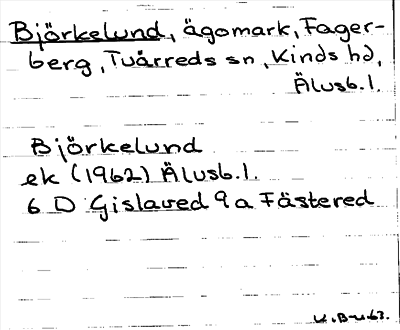 Björkelund, ägomark, Fager-
berg, Tvärreds sn, Kinds hd,
Älvsb. l.
Björkelund
ek (1962) Älvsb. l.
6 D Gislaved 9 a Fästered